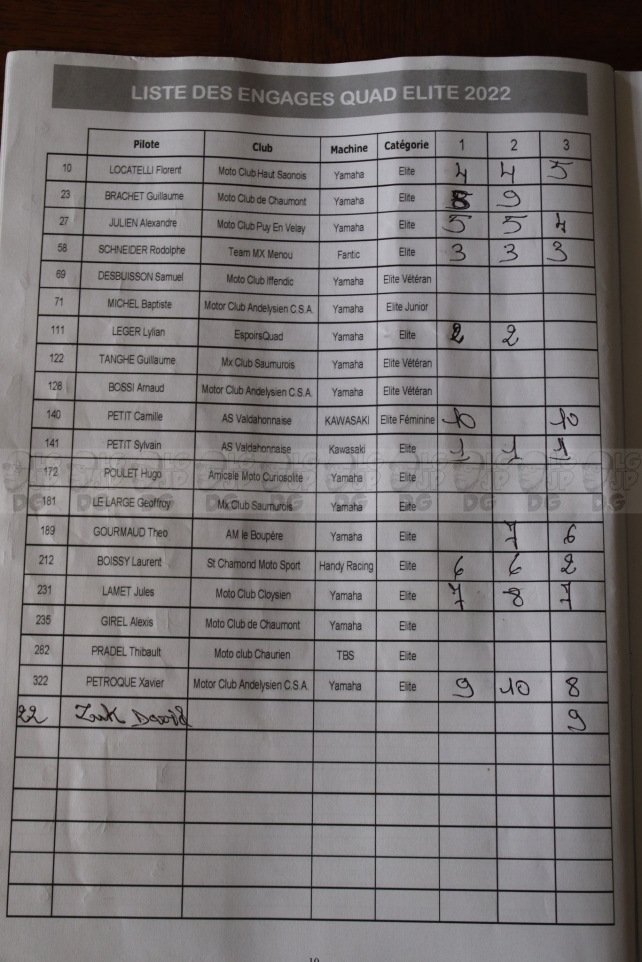 LISTE DES ENGAGES QUAD ELITE 2022
Pilote Club Machine Catégorie 1 2 3
10 LOCATELLI Florent Moto Club Haut Saonois Yamaha Elite 4 4 5
23 BRACHET Guillaume Moto Club de Chaumont Yamaha Elite 8 9
27 JULIEN Alexandre Moto Club Puy En Velay Yamaha Elite 5 5 4
58 SCHNEIDER Rodolphe Team MX Menou Fantic Elite 3 3 3
69 DESBUISSON Samuel Moto Club Iffendic Yamaha Elite Vétéran
71 MICHEL Baptiste Motor Club Andelysien C.S.A. Yamaha Elite Junior
111 LEGER Lylian EspoirsQuad Yamaha Elite 2 2
122 TANGHE Guillaume Mx Club Saumurois Yamaha Elite Vétéran
128 BOSSI Arnaud Motor Club Andelysien C.S.A. Yamaha Elite Vétéran
140 PETIT Camille AS Valdahonnaise KAWASAKI Elite Féminine 10 10
141 PETIT Sylvain AS Valdahonnaise Kawasaki Elite 1 1 1
172 POULET Hugo Amicale Moto Curiosolite Yamaha Elite
181 LE LARGE Geoffroy Mx Club Saumurois Yamaha Elite
189 GOURMAUD Theo AM le Boupère Yamaha Elite 7 6
212 BOISSY Laurent St Chamond Moto Sport Handy Racing Elite 6 6 2
231 LAMET Jules Moto Club Cloysien Yamaha Elite 7 8 7
235 GIREL Alexis Moto Club de Chaumont Yamaha Elite
282 PRADEL Thibault Moto club Chaurien TBS Elite
322 PETROQUE Xavier Motor Club Andelysien C.S.A. Yamaha Elite 9 10 8
22 David 9